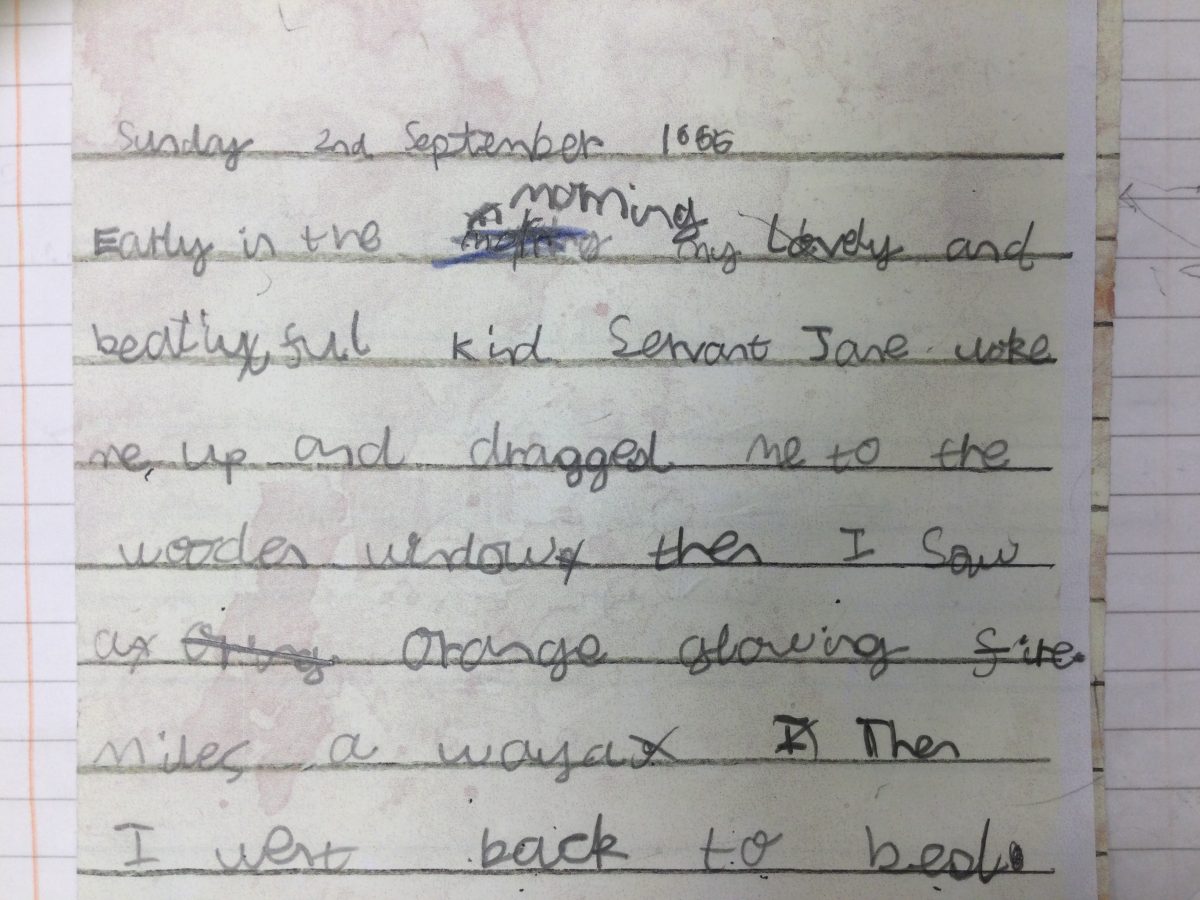 Sunday 2nd September 1666
Early in the morning my Lovely and
beatiyful kind Servant Jane woke
me, up and dragged me to the
wooden window then I Saw
a Orange glowing fire.
Miles a way Then
I went back to bed.